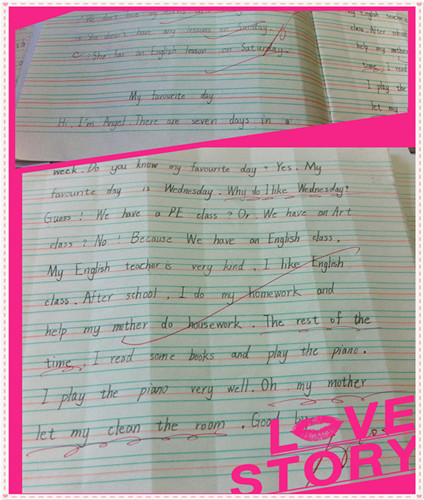 You don't have any lessons on Sunday.
She has an English lesson on Saturday.
My English teacher is
class. After school
help my mother
time. I read
I play the
let my
My favourite day
Hi, I'm Angel. There are seven days in a
week. Do you know my favourite day? Yes. My
favourite day is Wednesday. Why do I like Wednesday?
Guess! We have a PE class? Or. We have an Art
class? No! Because We have an English class.
My English teacher is very kind. I like English
class. After school, I do my homework and
help my mother do housework. The rest of the
time. I read some books and play the piano.
I play the piano very well. Oh my mother
let my clean the room. Good bye
LOVE
STORY